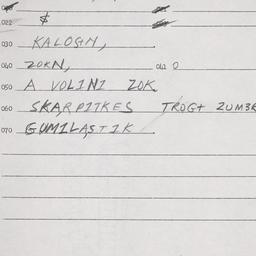 022 $
030 KALOGN,
040 ZORN, 042 0
050 A VOLINI ZOK
060 SKARPITKES TROGT ZUMER
070 GUMILASTIK